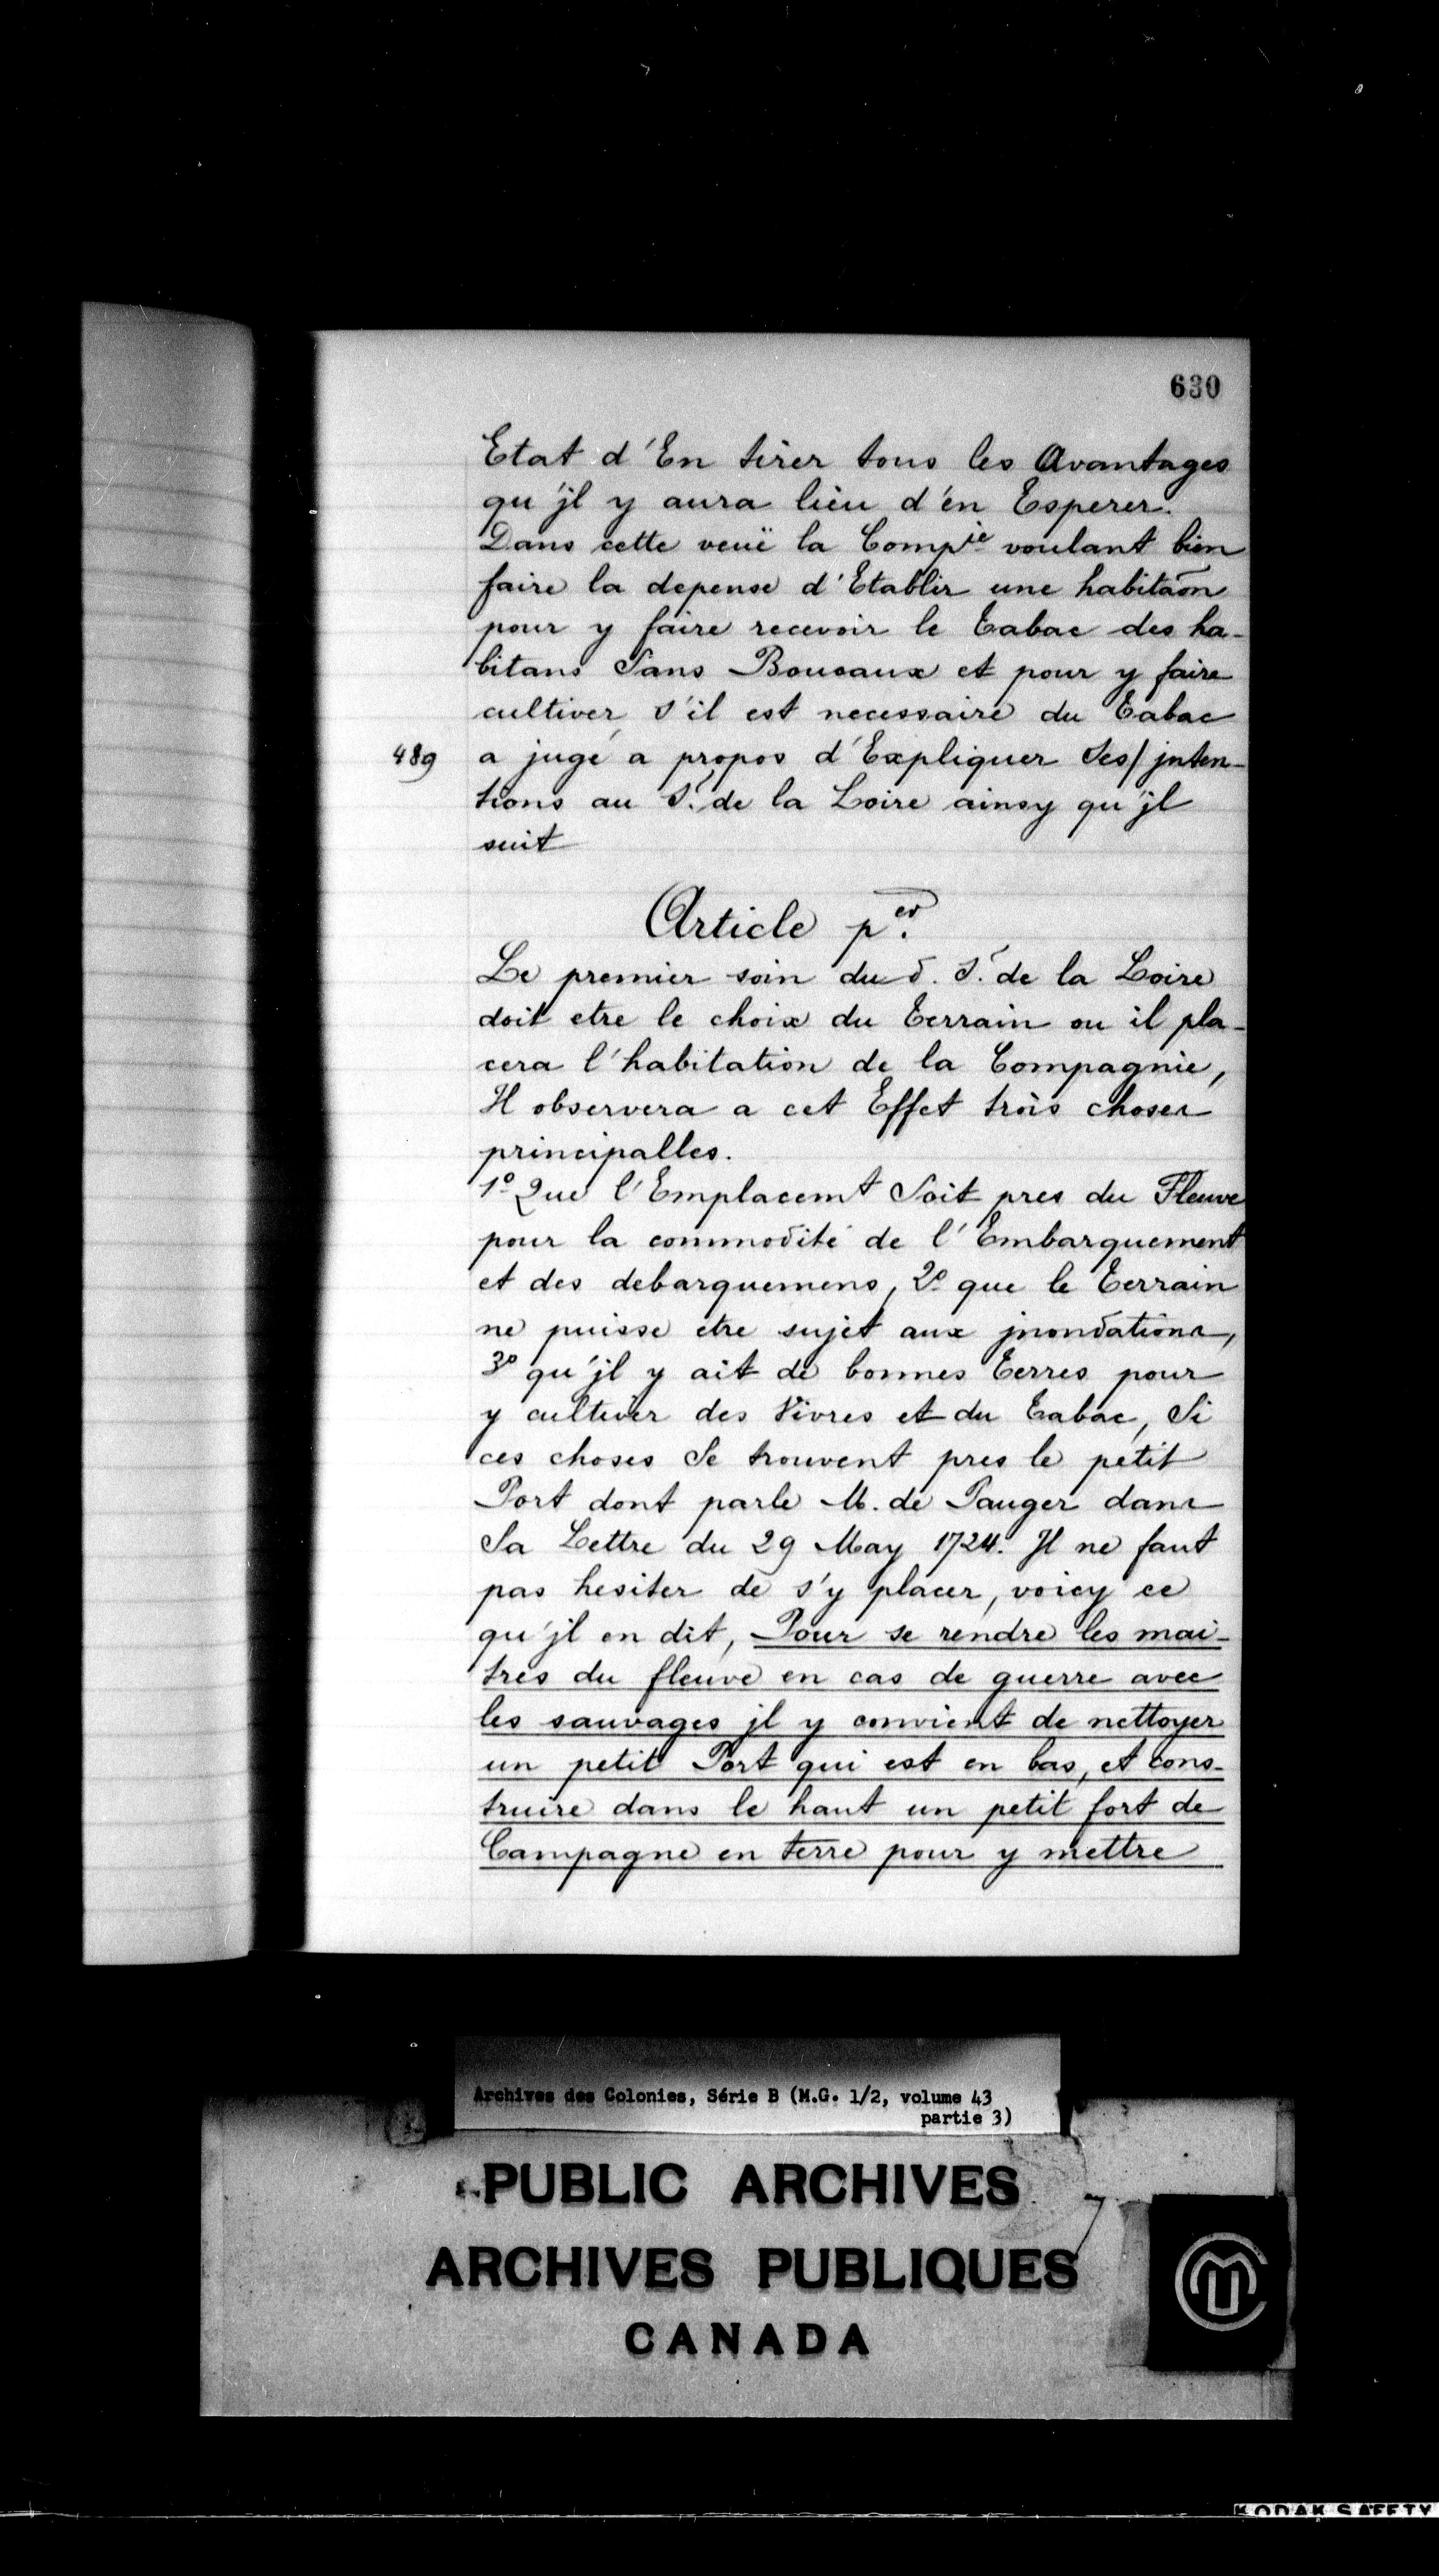 630
Etat d'En tirer tous les Avantages
qu'jl y aura lieu d'en Esperer.
Dans cette veuë la Comp^ie voulant bien
faire la depense d'Etablir une habitaon
pour y faire recevoir le Tabac des ha-
bitans Sans Boucaux et pour y faire
cultiver s'il est necessaire du Tabac
489 a jugé a propos d'Expliquer Ses/ jnten-
tions au S.^r de la Loire ainsy qu'jl
suit
Article p^er.
Le premier soin du d. S.^r de la Loire
doit etre le choix du Terrain ou il pla-
cera l'habitation de la Compagnie,
Il observera a cet Effet trois choses
principalles.
1º Que l'Emplacemt Soit pres du Fleuve
pour la commodité de l'Embarquement
et des debarquemens, 2º que le Terrain
ne puisse etre sujet aux jnondations,
3º qu'jl y ait de bonnes Terres pour
y cultiver des Vivres et du Tabac, Si
ces choses Se trouvent pres le petit
Port dont parle M. de Pauger dans
Sa Lettre du 29 May 1724. Il ne faut
pas hesiter de s'y placer, voicy ce
qu'jl en dit, Pour se rendre les mai-
tres du fleuve en cas de guerre avec
les sauvages jl y convient de nettoyer
un petit Port qui est en bas, et cons-
truire dans le haut un petit fort de
Campagne en terre pour y mettre
Archives des Colonies, Série B (M.G. 1/2, volume 43
partie 3)
PUBLIC ARCHIVES
ARCHIVES PUBLIQUES
CANADA
KODAK SAFETY